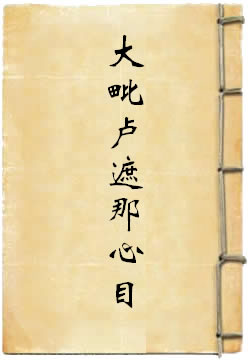 大毗卢遮那必目